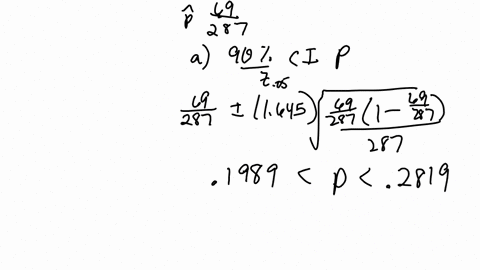 p̂ 69/287
a) 90% CI P
z.05
69/287 ± (1.645) √(69/287 (1 - 69/287) / 287)
.1989 < p < .2819